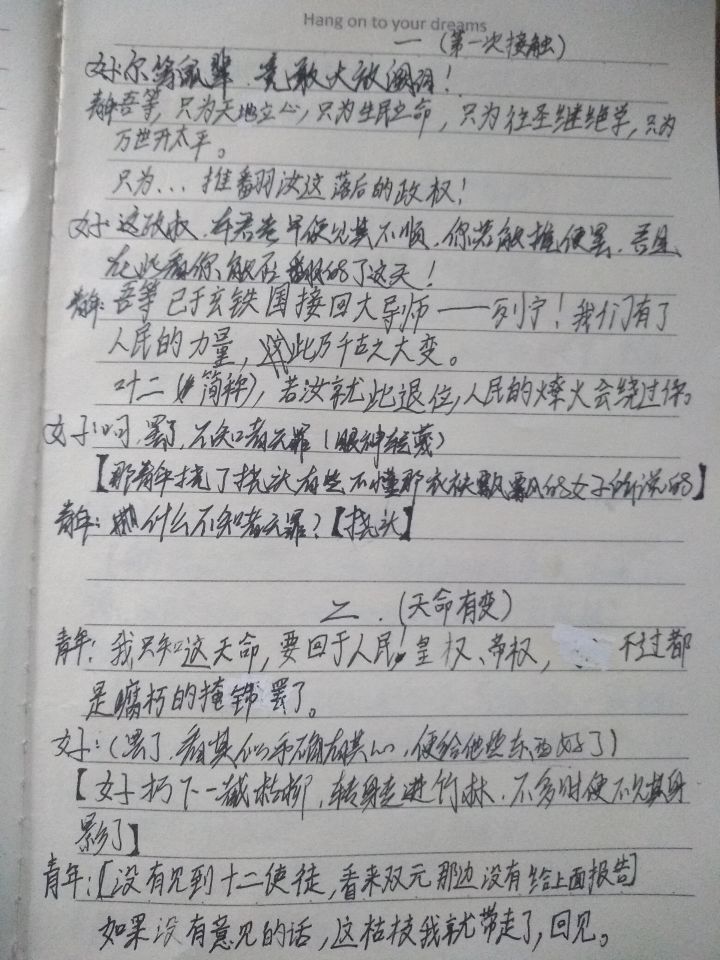 Hang on to your dreams
一 (第一次接触)
女子:尔等鼠辈,竟敢大放厥词!
青年:吾等,只为天地立心,只为生民立命,只为往圣继绝学,只为
万世开太平。
只为...推翻汝这落后的政权!
女子:这政权,本君老早便见其不顺,你若能推便罢,吾且
在此看你能否翻了这天!
青年:吾等已于玄铁国接回大导师——列宁!我们有了
人民的力量,此乃千古之大变。
叶二(简称),若汝就此退位,人民的燎火会绕过你。
女子:呵,罢了,不知者无罪(眼神轻蔑)
【那青年挠了挠头有些不懂那衣袂飘飘的女子所说的】
青年:什么不知者无罪?【挠头】
二.(天命有变)
青年:我只知这天命,要回于人民!皇权、帝权,不过都
是腐朽的掩饰罢了。
女子:(罢了,看其似乎确有其心,便给他些东西好了)
【女子扔下一截枯枝,转身走进竹林,不多时便不见其身
影了】
青年:[没有见到十二使徒,看来双元那边没有给上面报告]
如果没有意见的话,这枯枝我就带走了,回见。